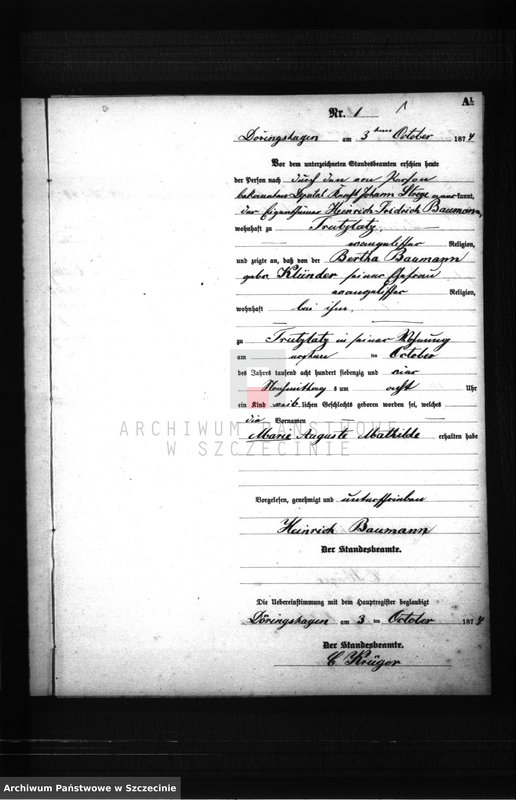 A1.
Nr. 1
Döringshagen am 3ten October 1874
Vor dem unterzeichneten Standesbeamten erschien heute
der Person nach durch den von Person
bekannten Johann Strege aner kannt,
der Eigenthümer Heinrich Fridrich Baumann,
wohnhaft zu Trutzlatz,
evangelischer Religion,
und zeigte an, daß von der Bertha Baumann
gebr. Klünder seiner Ehefrau
evangelischer Religion,
wohnhaft bei ihm,
zu Trutzlatz in seiner Wohnung
am ersten ten October
des Jahres tausend acht hundert siebenzig und vier
Nachmittag s um acht Uhr
ein Kind weib lichen Geschlechts geboren worden sei, welches
die Vornamen
Marie Auguste Mathilde erhalten habe
ARCHIWUM PAŃSTWOWE
W SZCZECINIE
Vorgelesen, genehmigt und unterschrieben
Heinrich Baumann
Der Standesbeamte.
Die Uebereinstimmung mit dem Hauptregister beglaubigt
Döringshagen am 3 ten October 1874
Der Standesbeamte.
C Krüger
Archiwum Państwowe w Szczecinie